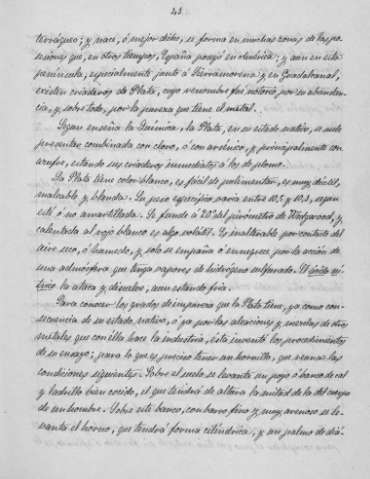 43
terráqueo; y nace, ó mejor dicho, se forma en muchas zonas de las po-
siones que, en otros tiempos, España poseyó en América; y aun en esta
península, especialmente junto á Sierramorena y en Guadalcanal,
existen criaderos de Plata, cuyo renombre fué notorio, por su abundan-
cia, y sobre todo, por la pureza que tiene el metal.
Según enseña la Química, la Plata, en su estado nativo, se suele
presentar combinada con cloro, ó con arsénico, y principalmente con
azufre, estando sus criaderos inmediatos á los de plomo.
La Plata tiene color blanco, es fácil de pulimentar, es muy dúctil,
maleable y blanda. Su peso específico varía entre 10.4 y 10.5, según
esté ó no amartillada. Se funde á 20° del pirómetro de Wedgwood, y
calentada al rojo blanco es algo volátil. Es inalterable por contacto del
aire seco, ó húmedo, y solo se empaña ó ennegrece por la acción de
una admósfera que tenga vapores de hidrógeno sulfurado. El ácido ní-
trico la ataca y disuelve, aun estando fria.
Para conocer los grados de impureza que la Plata tiene, ya como con-
secuencia de su estado nativo, ó ya por las aleaciones y mezclas de otros
metales que con ella hace la industria, está inventó los procedimientos
de su ensayo; para lo que es preciso tener un hornillo, que reuna las
condiciones siguientes. Sobre el suelo se levanta un poyo ó banco de cal
y ladrillo bien cocido, el que tendrá de altura la mitad de la del cuerpo
de un hombre. Sobre este banco, con barro fino y muy arenoso se le-
vanta el horno, que tendrá forma cilíndrica, y un palmo de diá-